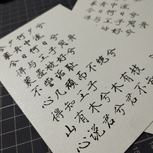 搴舟中流
今日何日兮
得与王子同舟
蒙羞被好兮
不訾诟耻
心几烦而不绝兮
得知王子
山有木兮木有枝
心说君兮君不